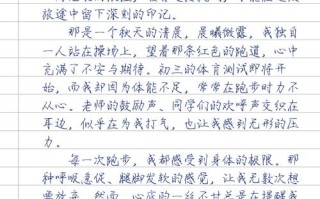 旅途中留下深刻的印记。
那是一个秋天的清晨，晨曦微露，我独自
一人站在操场上，望着那条红色的跑道，心中
充满了不安与期待。初三的体育测试即将开
始，而我却因为体能不足，常常在跑步时力不
从心。老师的鼓励声、同学们的欢呼声交织在
耳边，似乎在为我打气，也让我感到无形的压
力。
每一次跑步，我都感受到身体的极限。那
种呼吸急促、腿脚发软的感觉，让我无数次想
要放弃。然而，心底的一丝不甘总是在提醒我